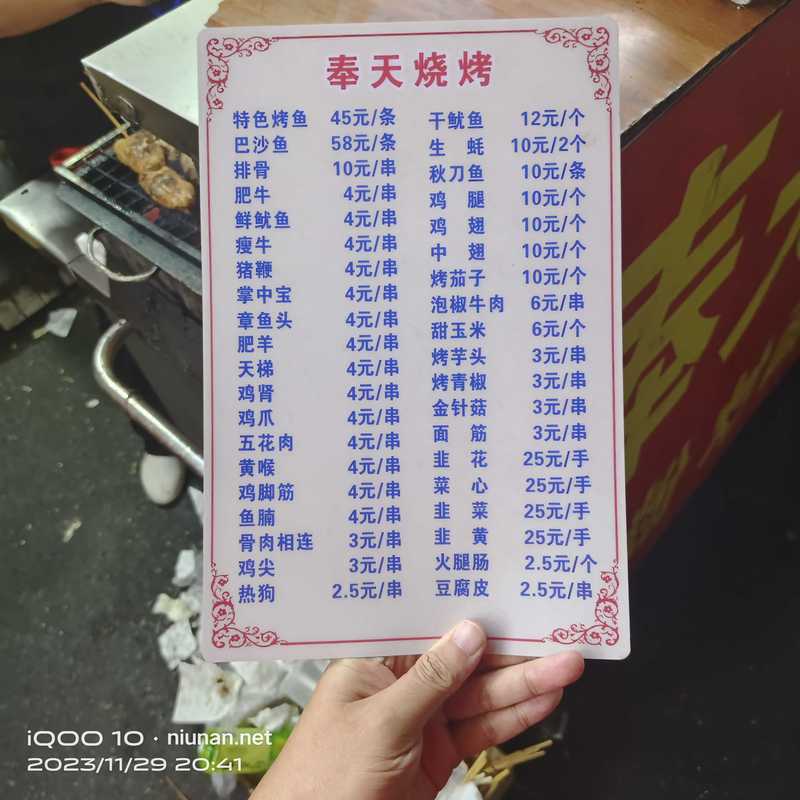 奉天烧烤
特色烤鱼 45元/条
巴沙鱼 58元/条
排骨 10元/串
肥牛 4元/串
鲜鱿鱼 4元/串
瘦牛 4元/串
猪鞭 4元/串
掌中宝 4元/串
章鱼头 4元/串
肥羊 4元/串
天梯 4元/串
鸡肾 4元/串
鸡爪 4元/串
五花肉 4元/串
黄喉 4元/串
鸡脚筋 4元/串
鱼腩 4元/串
骨肉相连 3元/串
鸡尖 3元/串
热狗 2.5元/串
干鱿鱼 12元/个
生蚝 10元/2个
秋刀鱼 10元/条
鸡腿 10元/个
鸡翅 10元/个
中翅 10元/个
烤茄子 10元/个
泡椒牛肉 6元/串
甜玉米 6元/个
烤芋头 3元/串
烤青椒 3元/串
金针菇 3元/串
面筋 3元/串
韭花 25元/手
菜心 25元/手
韭菜 25元/手
韭黄 25元/手
火腿肠 2.5元/个
豆腐皮 2.5元/串
iQOO 10 · niunan.net
2023/11/29 20:41